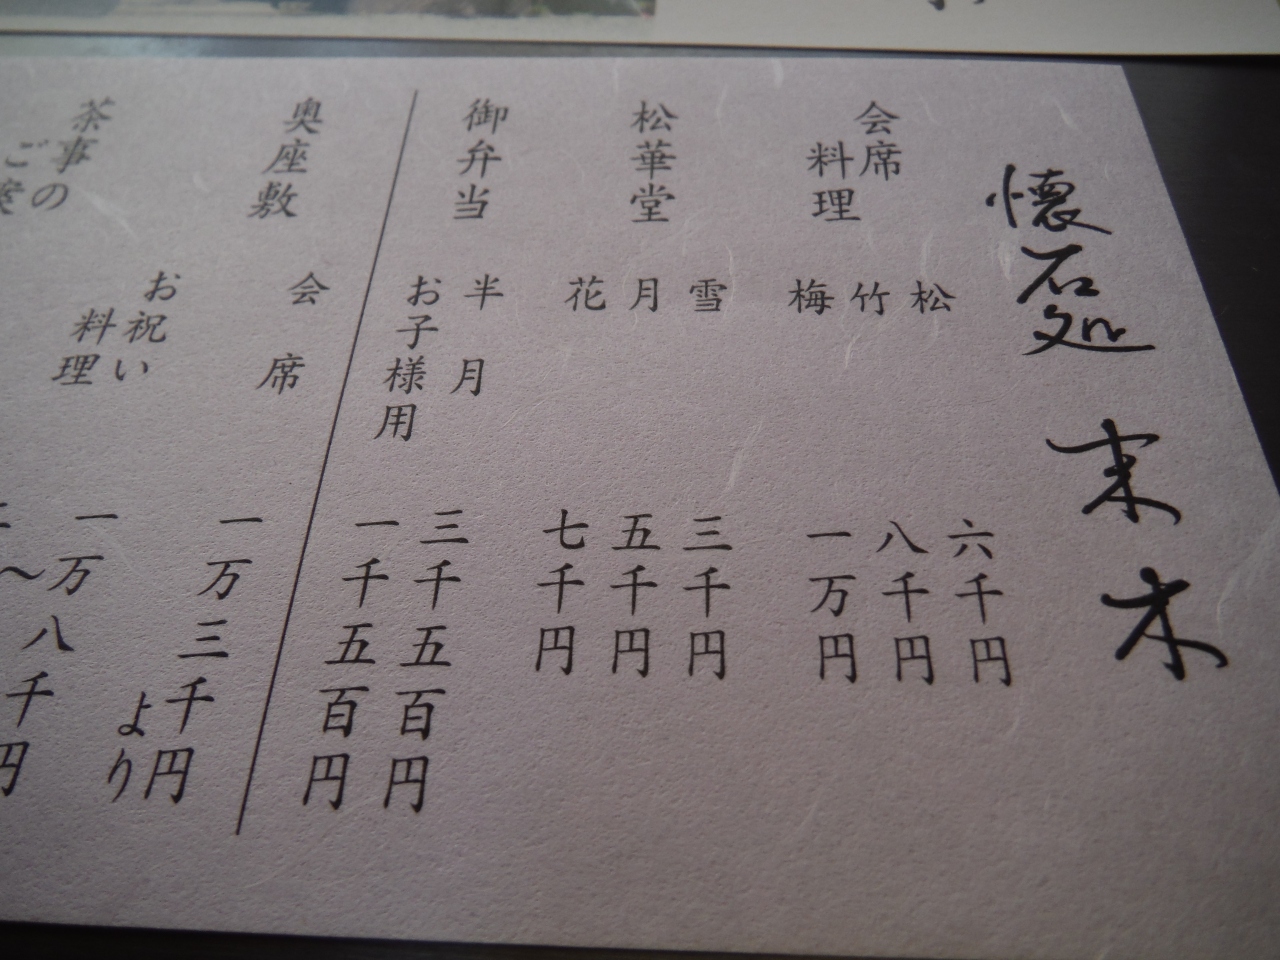 懐石処 末木
会席料理
松 六千円
竹 八千円
梅 一万円
松華堂
雪 三千円
月 五千円
花 七千円
御弁当
半月 三千五百円
お子様用 一千五百円
奥座敷
会席 一万三千円より
お祝い料理 一万八千円
茶事のご案